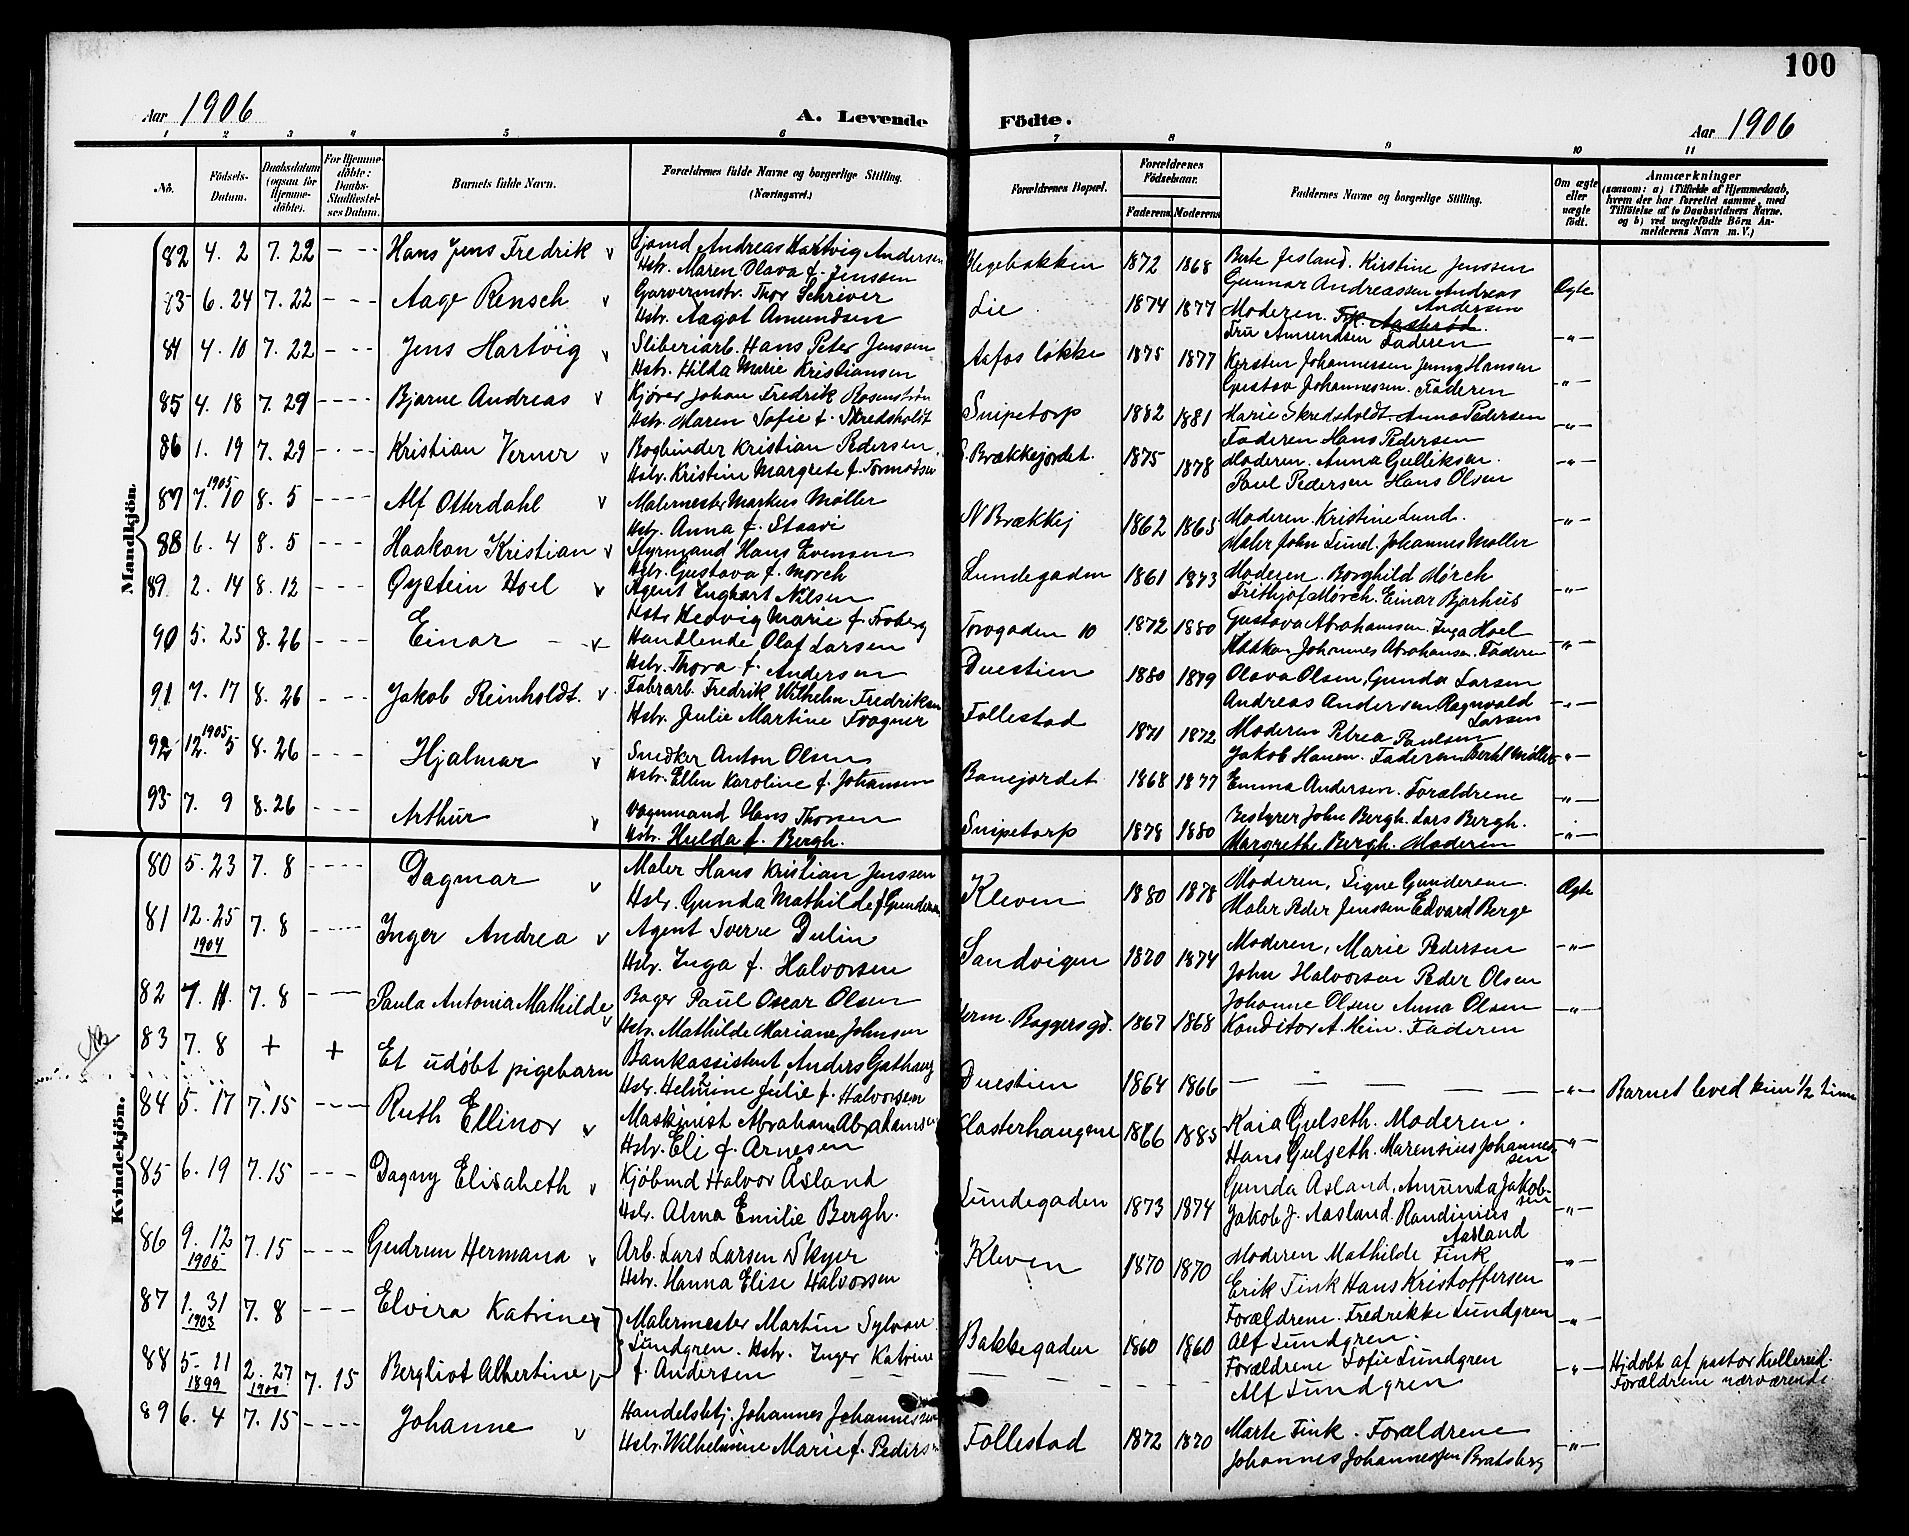 100
Aar 1906
A. Levende Födte.
Aar 1906
1 2 3 4 5 6 7 8 9 10 11
No.
Födsels-Datum.
Daabsdatum (ogsaa for Hjemmedöbte).
For Hjemmedöbte: Daabs-Stadfæstelses Datum.
Barnets fulde Navn.
Forældrenes fulde Navne og borgerlige Stilling. (Næringsvei.)
Forældrenes Bopæl.
Forældrenes Födselsaar.
Faderens Moderens
Faddernes Navne og borgerlige Stilling.
Om ægte eller uægte födt.
Anmærkninger
(saasom: a) i Tilfælde af Hjemmedaab,
hvem der har forrettet samme, med
Tilföielse af to Daabsvidners Navne.
og b) ved uægtefödte Börn An-
melderens Navn m. V.)
Mandkjön.
82 4. 2 7. 22 - - - Hans Jens Fredrik v Sjømd Andreas Hartvig Andersen Hegebakken 1872 1868 Berte Jesland. Kirstine Jenssen
Hstr. Maren Olava f. Jenssen Gunnar Andreassen Andreas Andersen Ægte
83 6. 24 7. 22 - - - Aage Rensch v Garvermstr. Thor Schriver Lie 1874 1877 Moderen. Frk. Aasterød.
Hstr. Aagot Amundsen Fru Amundsen Faderen -"-
84 4. 10 7. 22 - - - Jens Hartvig v Sliberiarb. Hans Peter Jenssen Aafos løkke 1875 1877 Kirsten Johannessen Jenny Hansen
Hstr. Hilda Marie Kristiansen Gustav Johannessen. Faderen -"-
85 4. 18 7. 29 - - - Bjarne Andreas v Kjører Johan Fredrik Rosenstrøm Snipetorp 1882 1881 Marie Skredsholdt Anna Pedersen
Hstr. Maren Sofie f. Skredsholdt Faderen Hans Pedersen -"-
86 1. 19 7. 29 - - - Kristian Verner v Bogbinder Kristian Pedersen. S. Brækkejordet. 1875 1878 Moderen. Anna Gulliksen.
Hstr. Kristine Margrete f. Tormodsen Paul Pedersen Hans Olsen -"-
87 7. 10 1905 8. 5 - - - Alf Otterdahl v Malermester Markus Møller N Brækkej 1862 1865 Moderen. Kristine Lund.
Hstr. Anna f. Staavi Maler John Lund. Johannes Møller -"-
88 6. 4 8. 5 - - - Haakon Kristian v Styrmand Hans Evensen Lundegaden 1861 1873 Moderen. Borghild Mørch
Hstr. Gustava f. Mørch Frithjof Mørch. Einar Bjørhus -"-
89 2. 14 8. 12 - - - Øystein Hoel v Agent Inghart Nilsen Torvgaden 10 1872 1880 Gustava Abrahamsen. Inga Hoel
Hstr Hedvig Marie f. Froberg Haakon Johannes Abrahamsen. Faderen -"-
90 5. 25 8. 26 - - - Einar v Handlende Olaf Larsen Duestien 1880 1879 Olava Olsen, Gunda Larsen
Hstr. Thora f. Andersen Andreas Andersen Ragnvald Larsen -"-
91 7. 17 8. 26 - - - Jakob Reinholdt. v Fabrarb. Fredrik Wilhelm Fredriksen Follestad 1871 1872 Moderen Petrea Paulsen
Hstr. Julie Martine Frogner Jakob Hansen. Faderen Bertel Møller -"-
92 12. 5 1905 8. 26 - - - Hjalmar v Snedker Anton Olsen Banejordet 1868 1877 Emma Andersen. Forældrene
Hstr. Ellen Karoline f. Johansen -"-
93 7. 9 8. 26 - - - Arthur v Vognmand Hans Thorsen Snipetorp 1878 1880 Bestyrer John Bergh. Lars Bergh.
Hstr. Hulda f. Bergh. Margrethe Bergh. Moderen -"-
Kvindekjön.
80 5. 23 7. 8 - - - Dagmar v Maler Hans Kristian Jenssen Kleven 1880 1878 Moderen, Signe Gundersen. Ægte
Hstr. Gunda Mathilde f Gundersen Maler Peder Jenssen Edvard Berge
81 12. 25 1904 7. 8 - - - Inger Andrea v Agent Sverre Dulin Sandvigen 1870 1874 Moderen, Marie Pedersen -"-
Hstr. Inga f. Halvorsen John Halvorsen Peder Olsen
82 7. 11. 7. 8 - - Paula Antonia Mathilde v Bager Paul Oscar Olsen Herm. Baggersgd. 1867 1868 Johanne Olsen Anna Olsen -"-
Hstr. Mathilde Mariane Johnsen Konditor A. Hein. Faderen
83 7. 8 + + Et udøbt pigebarn Bankassistent Anders Gathaug Duestien 1864 1866 - - - - - -"- Barnet leved kun 1/2 time
Hstr. Helmine Julie f. Halvorsen
84 5. 17 7. 15 - - - Ruth Ellinor v Maskinist Abraham Abrahamsen Klosterhaugene 1866 1885 Kaia Gulseth. Moderen.
Hstr. Eli f. Arnesen Hans Gulseth. Marensius Johannessen -"-
85 6. 19 7. 15 - - - Dagny Elisabeth v Kjøbmd Halvor Åsland Lundegaden 1873 1874 Gunda Asland, Amunda Jakobsen
Hstr. Alma Emilie Bergh. Jakob J. Aasland. Randinius Aasland -"-
86 9. 12 1905 7. 15 - - - Gudrun Hermana v Arb. Lars Larsen Skyer Kleven 1870 1870 Moderen Mathilde Fink -"-
Hstr. Hanna Elise Halvorsen Erik Fink Hans Kristoffersen
87 1. 31 1903 7. 8 - - - Elvira Katrine v Malermester Martin Sylvan Bakkegaden 1860 1860 Forældrene. Fredrikke Lundgren -"-
Lundgren. Hstr. Inger Katrine Alf Lundgren.
88 5. 11 1899 2. 27 1900 7. 15 Bergliot Albertine v f. Andersen - - - - - Forældrene Sofie Lundgren -"- Hjdøbt af pastor Kullerud.
Alf Lundgren Forældrene nærværende
89 6. 4 7. 15 - - - Johanne v Handelsbtj. Johannes Johannessen Follestad 1872 1870 Marte Fink. Forældrene
Hstr. Wilhelmine Marie f. Peders Johannes Johannessen Bratsberg -"-